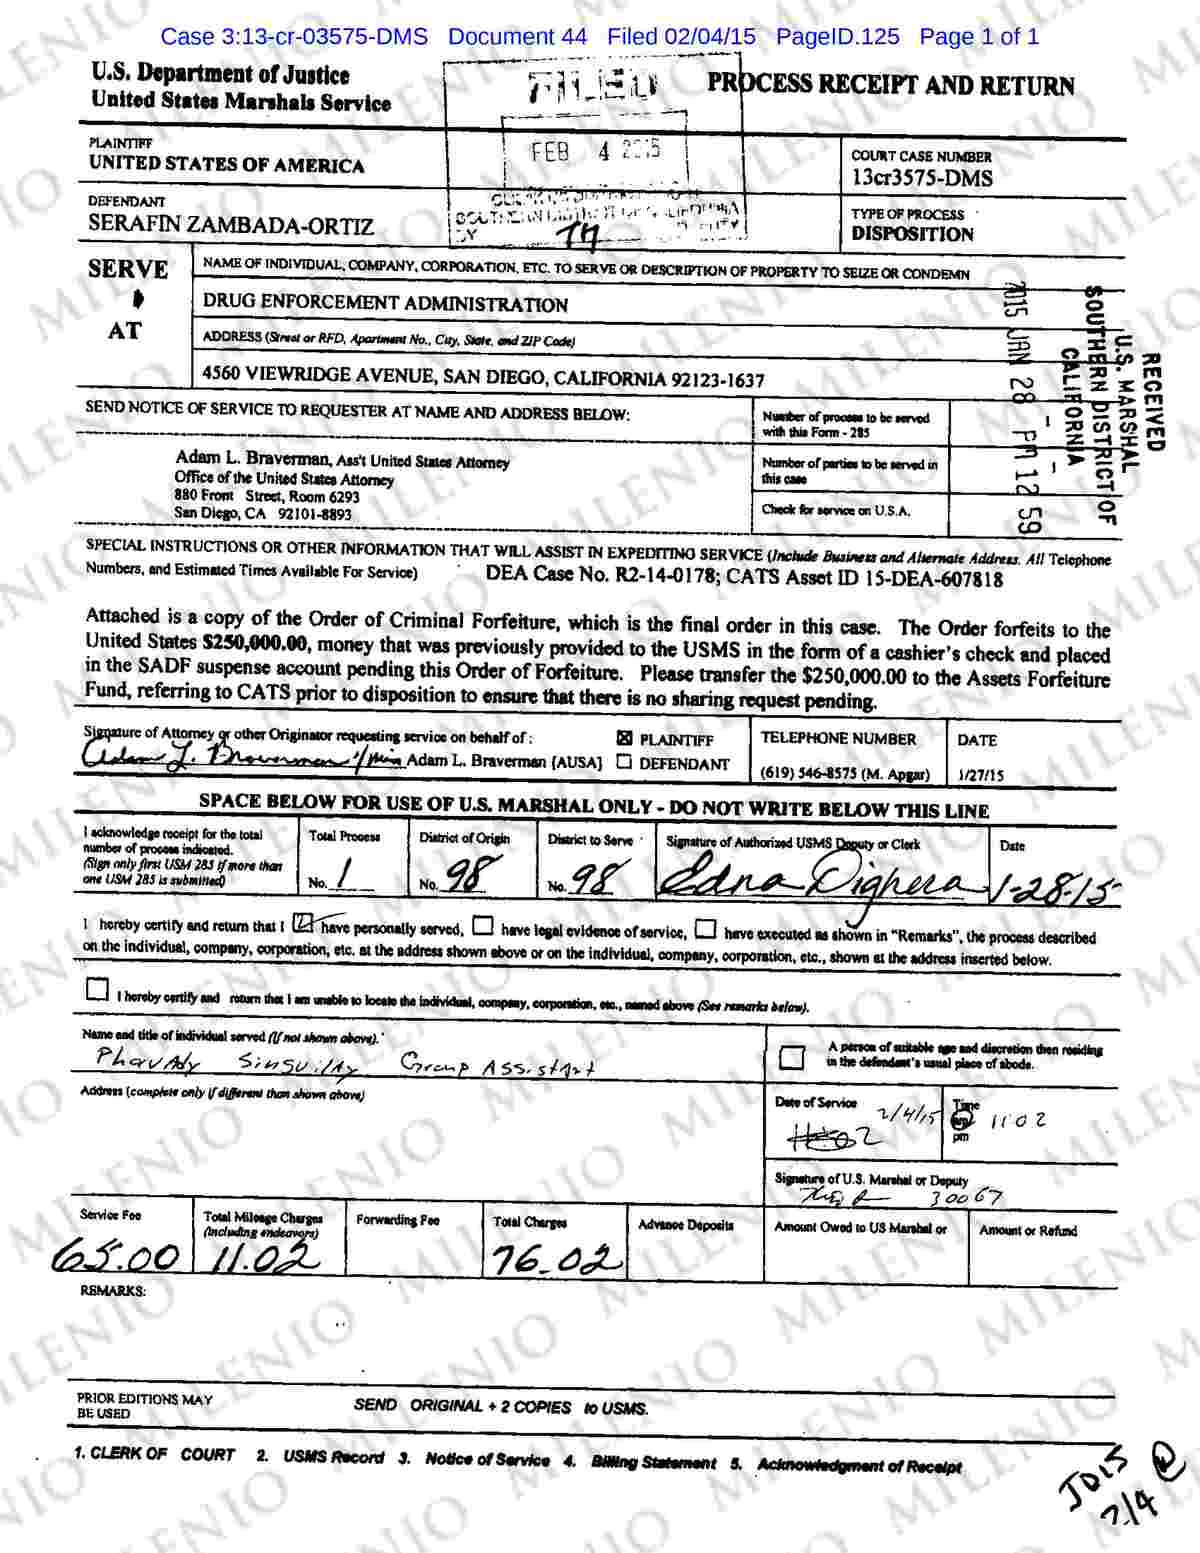 Case 3:13-cr-03575-DMS Document 44 Filed 02/04/15 PageID.125 Page 1 of 1
U.S. Department of Justice
United States Marshals Service
FILED
FEB 4 2015
PROCESS RECEIPT AND RETURN
PLAINTIFF
UNITED STATES OF AMERICA
COURT CASE NUMBER
13cr3575-DMS
DEFENDANT
SERAFIN ZAMBADA-ORTIZ
TYPE OF PROCESS
DISPOSITION
SERVE
AT
NAME OF INDIVIDUAL, COMPANY, CORPORATION, ETC. TO SERVE OR DESCRIPTION OF PROPERTY TO SEIZE OR CONDEMN
DRUG ENFORCEMENT ADMINISTRATION
ADDRESS (Street or RFD, Apartment No., City, State, and ZIP Code)
4560 VIEWRIDGE AVENUE, SAN DIEGO, CALIFORNIA 92123-1637
RECEIVED
U.S. MARSHAL
SOUTHERN DISTRICT OF
CALIFORNIA
2015 JAN 28 PM 12 59
SEND NOTICE OF SERVICE TO REQUESTER AT NAME AND ADDRESS BELOW:
Adam L. Braverman, Ass't United States Attorney
Office of the United States Attorney
880 Front Street, Room 6293
San Diego, CA 92101-8893
Number of process to be served
with this Form - 285
- 1 -
Number of parties to be served in
this case
- 1 -
Check for service on U.S.A.
SPECIAL INSTRUCTIONS OR OTHER INFORMATION THAT WILL ASSIST IN EXPEDITING SERVICE (Include Business and Alternate Address, All Telephone
Numbers, and Estimated Times Available For Service) DEA Case No. R2-14-0178; CATS Asset ID 15-DEA-607818
Attached is a copy of the Order of Criminal Forfeiture, which is the final order in this case. The Order forfeits to the
United States $250,000.00, money that was previously provided to the USMS in the form of a cashier's check and placed
in the SADF suspense account pending this Order of Forfeiture. Please transfer the $250,000.00 to the Assets Forfeiture
Fund, referring to CATS prior to disposition to ensure that there is no sharing request pending.
Signature of Attorney or other Originator requesting service on behalf of :
Adam L. Braverman Adam L. Braverman (AUSA)
PLAINTIFF
DEFENDANT
TELEPHONE NUMBER
(619) 546-8575 (M. Apgar)
DATE
1/27/15
SPACE BELOW FOR USE OF U.S. MARSHAL ONLY - DO NOT WRITE BELOW THIS LINE
I acknowledge receipt for the total
number of process indicated.
(Sign only first USM 285 if more than
one USM 285 is submitted)
Total Process
No. 1
District of Origin
No. 98
District to Serve
No. 98
Signature of Authorized USMS Deputy or Clerk
Edna Dighera
Date
1-28-15
I hereby certify and return that I have personally served, have legal evidence of service, have executed as shown in "Remarks", the process described
on the individual, company, corporation, etc. at the address shown above or on the individual, company, corporation, etc., shown at the address inserted below.
I hereby certify and return that I am unable to locate the individual, company, corporation, etc., named above (See remarks below).
Name and title of individual served (If not shown above).
Group Assistant
A person of suitable age and discretion then residing
in the defendant's usual place of abode.
Address (complete only if different than shown above)
Date of Service
2/4/15
Time
am
pm
1102
Signature of U.S. Marshal or Deputy
30067
Service Fee
65.00
Total Mileage Charges
(including endeavors)
11.02
Forwarding Fee
Total Charges
76.02
Advance Deposits
Amount Owed to US Marshal or
Amount or Refund
REMARKS:
PRIOR EDITIONS MAY
BE USED
SEND ORIGINAL + 2 COPIES to USMS.
1. CLERK OF COURT 2. USMS Record 3. Notice of Service 4. Billing Statement 5. Acknowledgment of Receipt
MILENIO